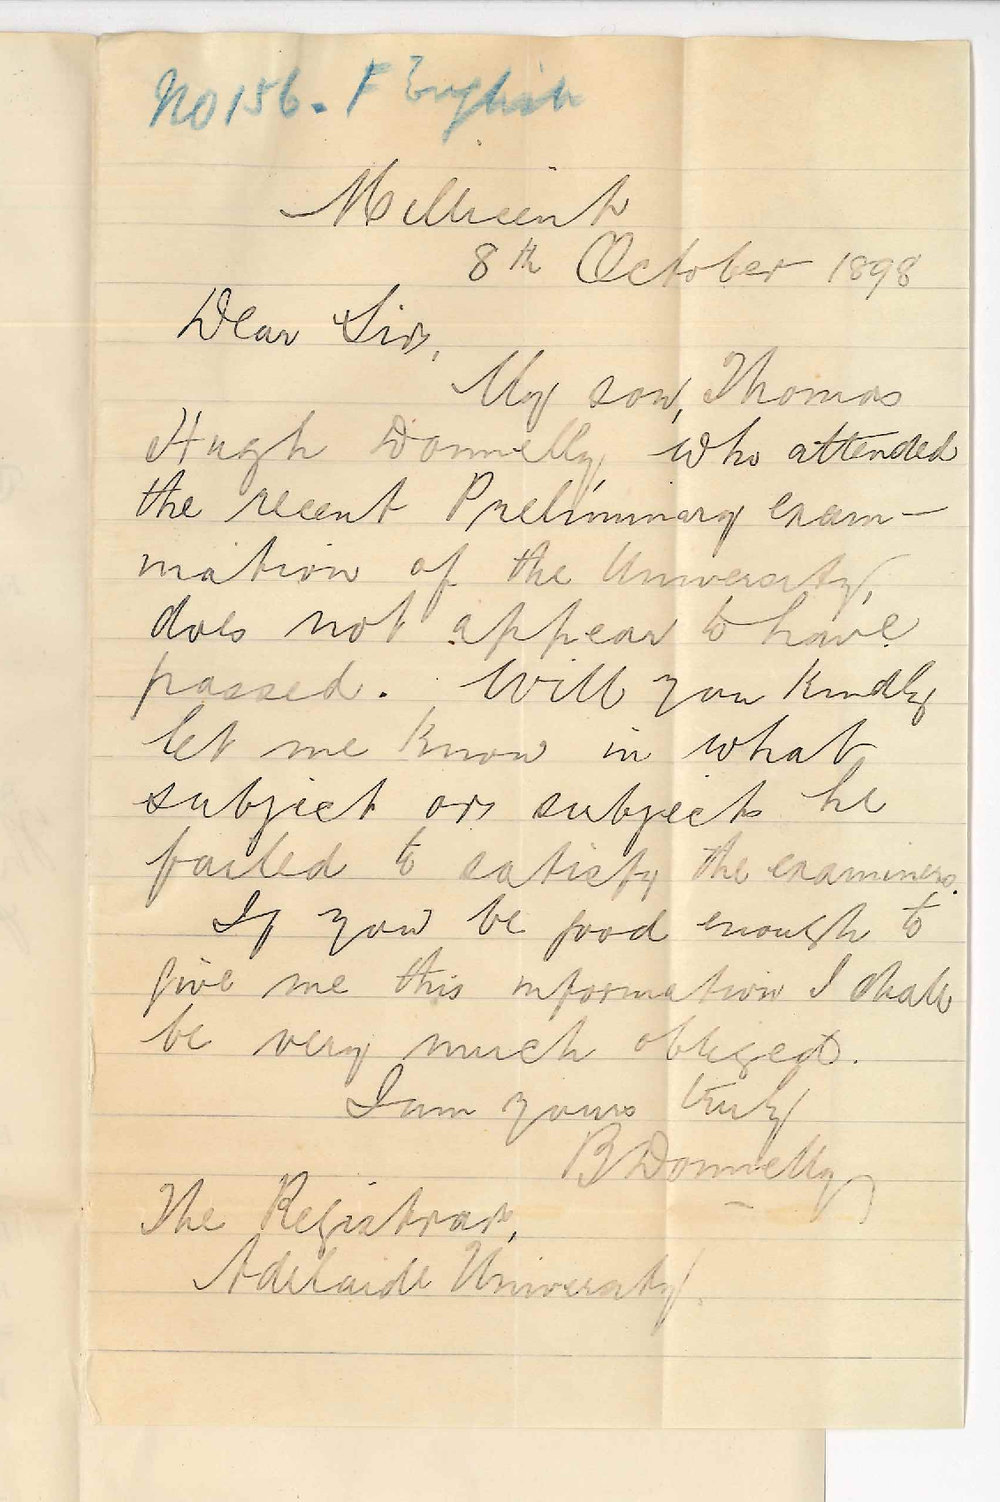 No 156. F English
Millicent
8th October 1898
Dear Sir,
My son, Thomas
Hugh Donnelly, who attended
the recent Preliminary exam-
mation of the University,
does not appear to have
passed. Will you kindly
let me know in what
subject or subjects he
failed to satisfy the examiners.
If you be good enough to
give me this information I shall
be very much obliged.
I am yours truly
B Donnelly
The Registrar,
Adelaide University.